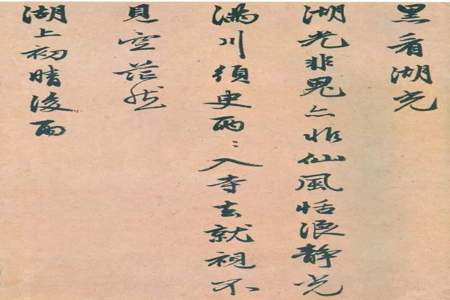 黑看湖光
湖光非鬼亦非仙風恬浪靜光
滿川須臾兩〻入寺去就視不
見空茫然
湖上初晴後雨